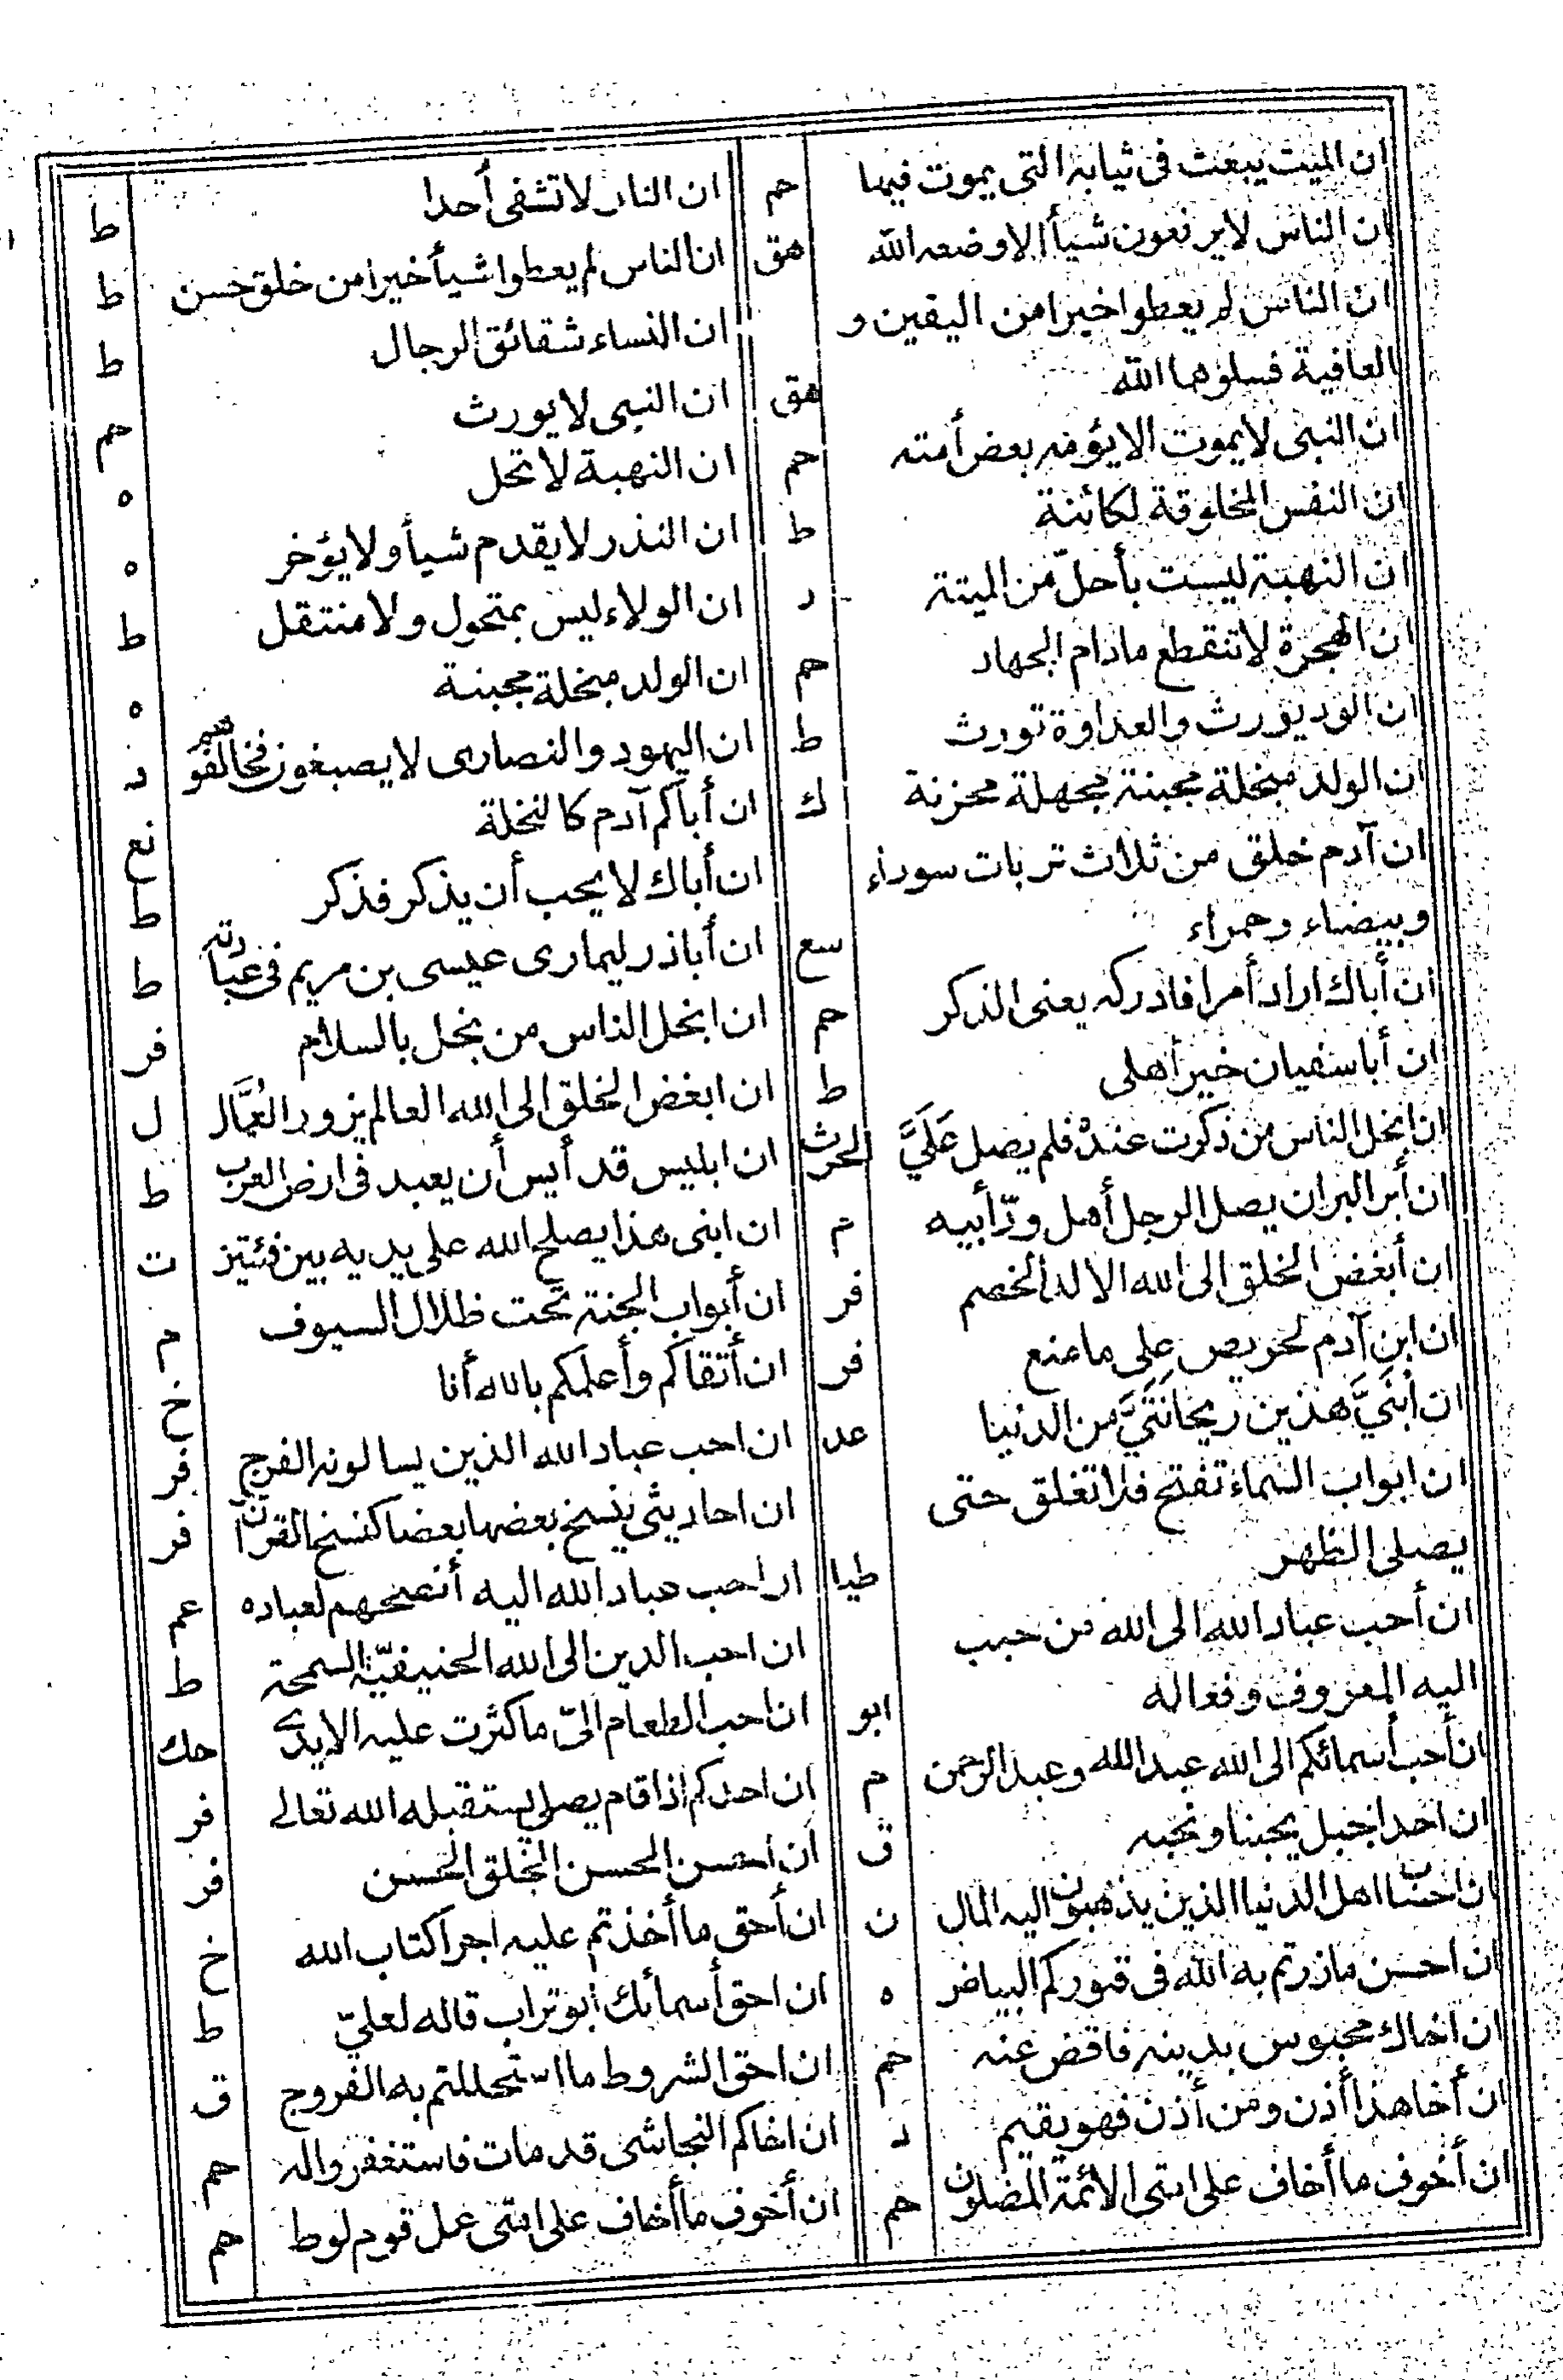 ان الميت يبعث فى ثيابه التى يموت فيها حم
ان الناس لا يرفعون شيأ الا وضعه الله هق
ان الناس لم يعطوا خيرا من اليقين و
العافية فسلوها الله هق
ان النبى لا يموت الا يؤمه بعض أمته حم
ان النفس المخلوقة لكائنة ط
ان النهبة ليست بأحلّ من الميتة د
ان الهجرة لا تنقطع مادام الجهاد حم
ان الود يورث والعداوة تورث ط
ان الولد مبخلة مجبنة مجهلة محزنة ك
ان آدم خلق من ثلاث تربات سوداء
وبيضاء وحمراء سع
ان أباك اراد أمرا فادركه يعنى الذكر حم
ان أبا سفيان خير أهلى ط
ان ابخل الناس من ذكرت عنده فلم يصل عَلَيَّ الحرث
ان أبر البر ان يصل الرجل أهل ودّ أبيه م
ان أبغض الخلق الى الله الالد الخصم فر
ان ابن آدم لحريص على ما منع فر
ان ابْنَيَّ هذين ريحانَتَيَّ من الدنيا عد
ان ابواب السماء تفتح فلا تغلق حتى
يصلى الظهر طيا
ان أحب عباد الله الى الله من حبب
اليه المعروف وفعاله ابو
ان أحب أسمائكم الى الله عبد الله وعبد الرحمن م
ان احدا جبل يحبنا ونحبه ق
ان احساب اهل الدنيا الذين يذهبون اليه المال ن
ان احسن مازرتم به الله فى قبوركم البياض ه
ان اخاك محبوس بدينه فاقض عنه حم
ان أخا هذا أذن ومن أذن فهو يقيم د
ان أخوف ما أخاف على امتى الأئمة المضلون حم
ان النار لا تشفى أحدا ط
ان الناس لم يعطوا شيأ خيرا من خلق حسن ط
ان النساء شقائق الرجال ط
ان النبى لا يورث حم
ان النهبة لا تحل ه
ان النذر لا يقدم شيأ ولا يؤخر ه
ان الولاء ليس بمتحول ولا منتقل ط
ان الولد مبخلة مجبنة ه
ان اليهود والنصارى لا يصبغون فخالفوهم د
ان أباكم آدم كالنخلة نع
ان أباك لا يحب أن يذكر فذكر ط
ان أباذر ليمارى عيسى بن مريم فى عبادته ط
ان ابخل الناس من بخل بالسلام فر
ان ابغض الخلق الى الله العالم يزور العُمَّال ل
ان ابليس قد أيس أن يعبد فى ارض العرب ط
ان ابنى هذا يصلح الله على يديه بين فئتين ت
ان أبواب الجنة تحت ظلال السيوف م
ان أتقاكم وأعلمكم بالله أنا خ
ان احب عباد الله الذين يسالونه الفرج فر
ان احاديثى ينسخ بعضها بعضا كنسخ القرآن فر
ان احب عباد الله اليه أنصحهم لعباده عم
ان احب الدين الى الله الحنيفيّة السمحة ط
ان احب الطعام الىّ ما كثرت عليه الايدى حك
ان احدكم اذا قام يصلى يستقبله الله تعالى فر
ان احسن الحسن الخلق الحسن فر
ان أحق ما أخذتم عليه اجرا كتاب الله خ
ان احق أسمائك ابو تراب قاله لعلىّ ط
ان احق الشروط ما استحللتم به الفروج ق
ان اخاكم النجاشى قد مات فاستغفروا له حم
ان أخوف ما أخاف على امتى عمل قوم لوط حم